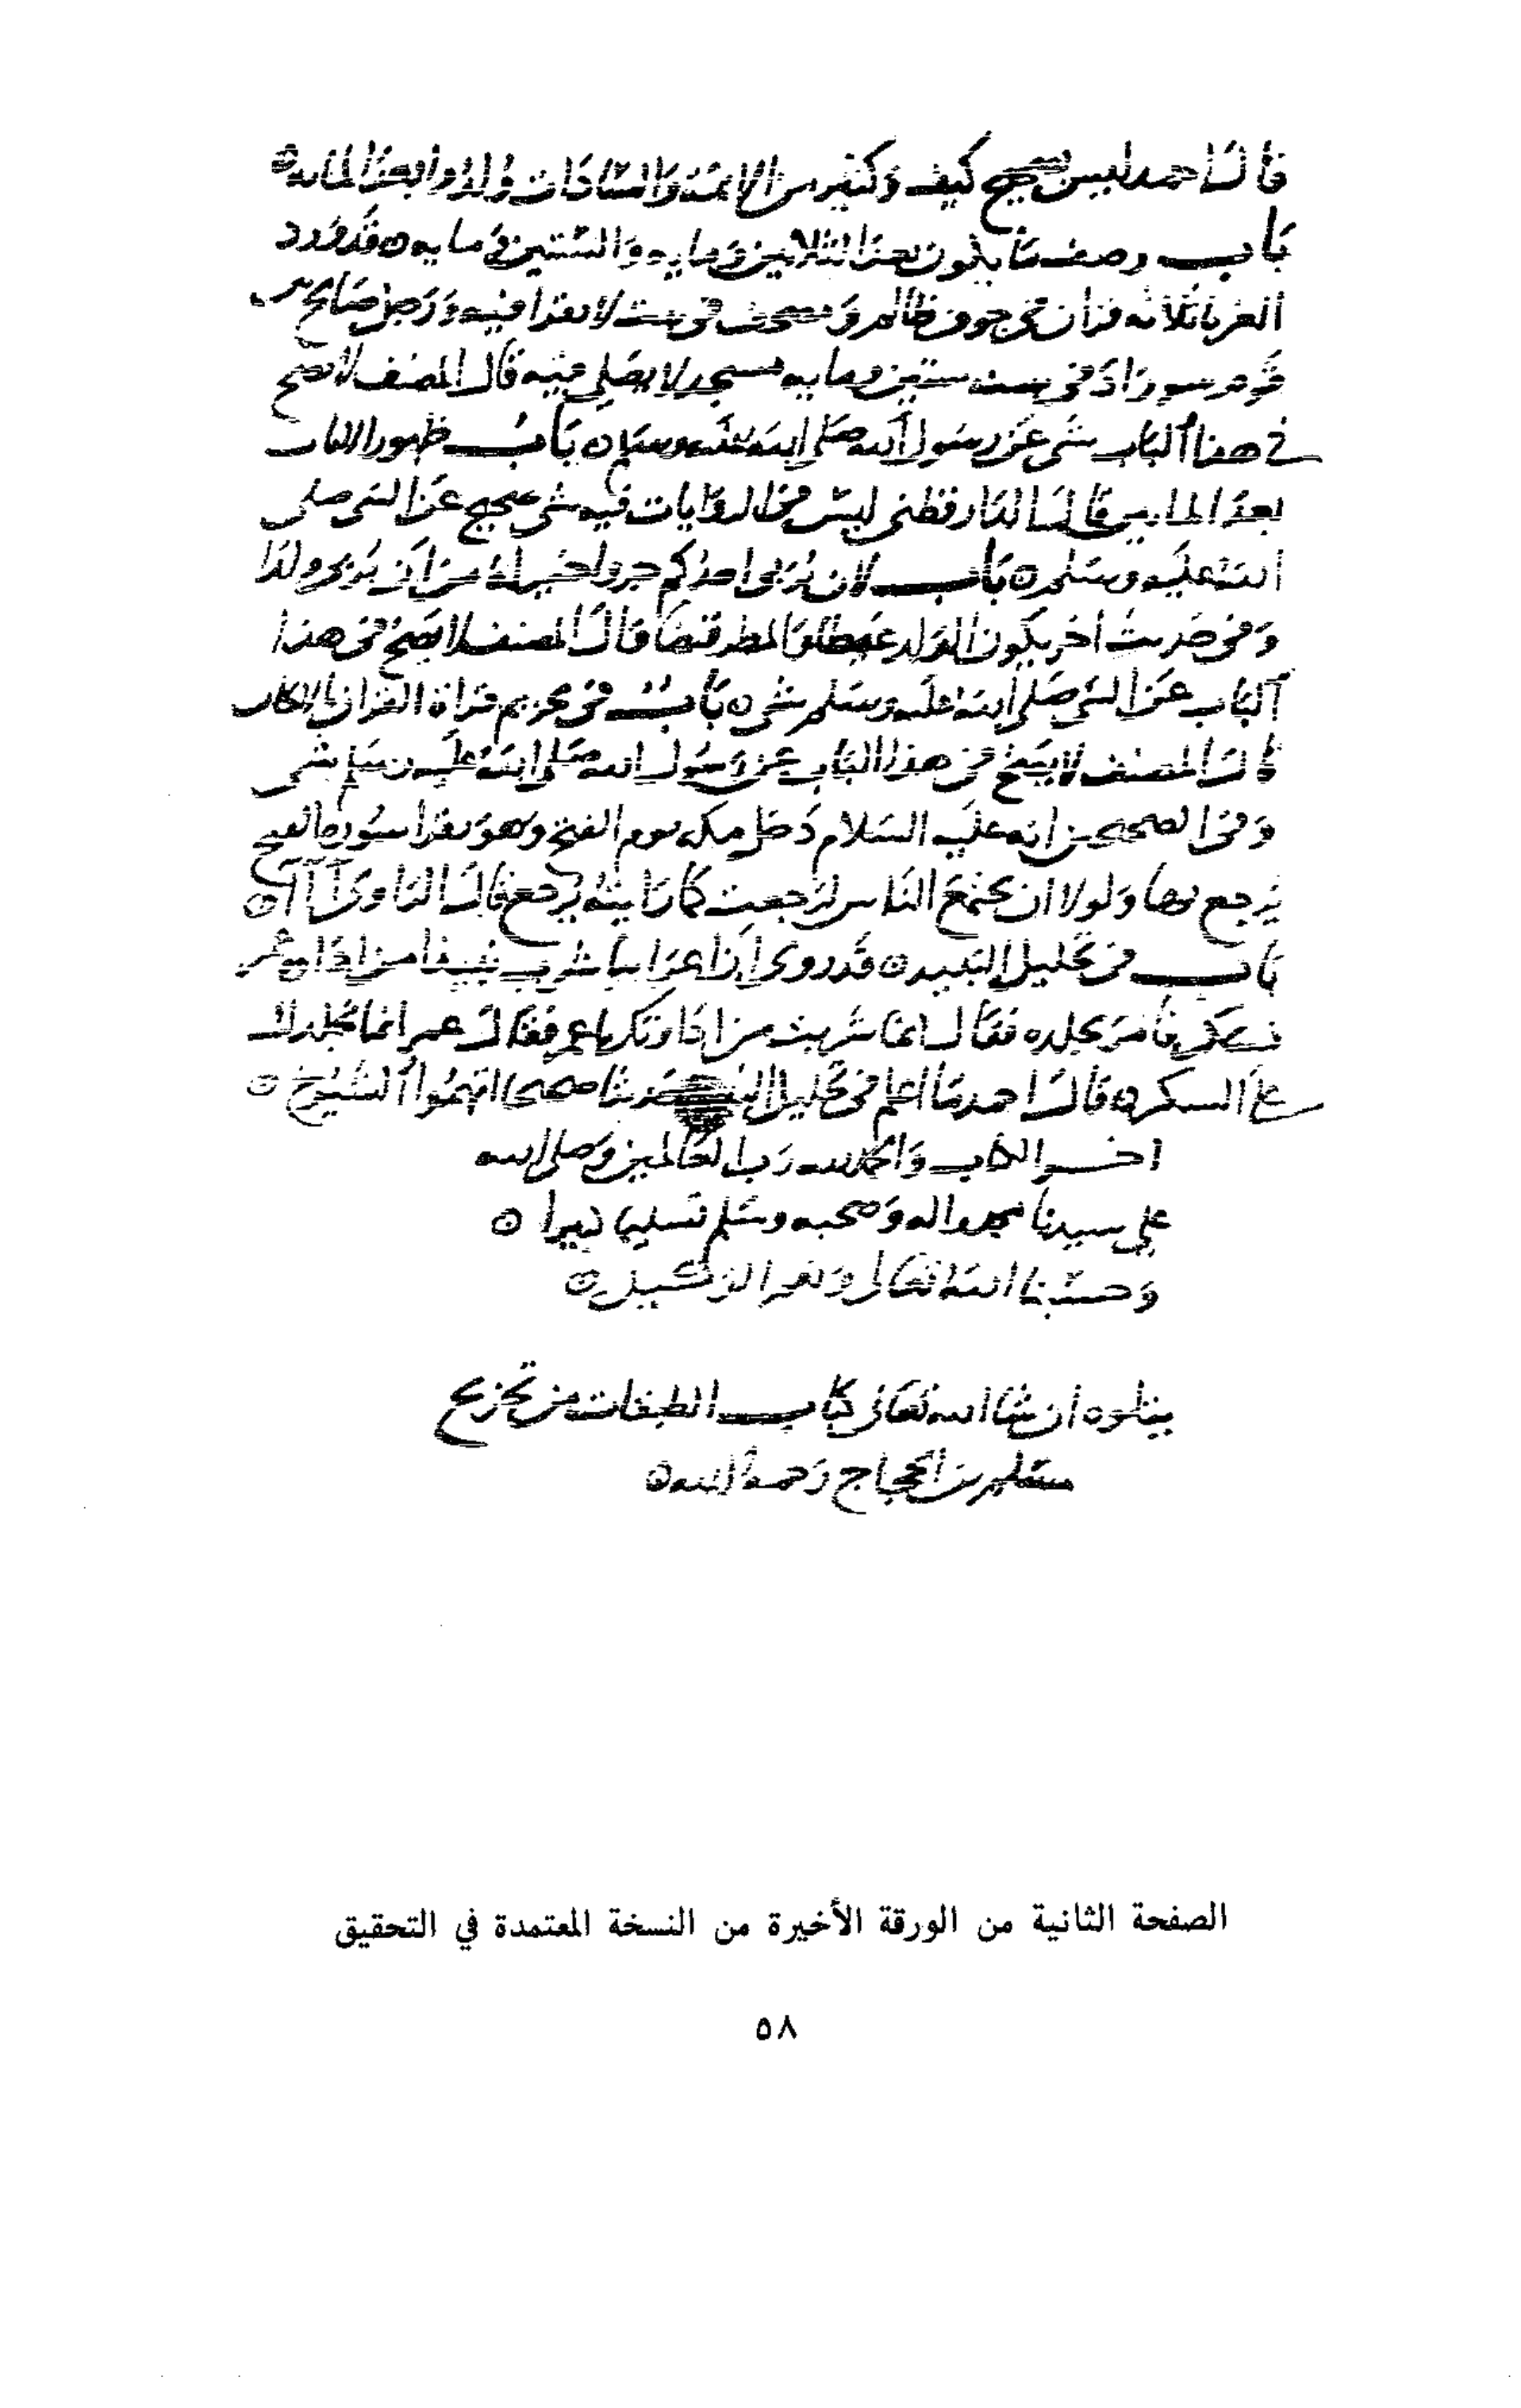 قال احمد ليس بصحيح كيف وكثير من الائمة والسادات ولدوا بعد المايه ه
باب وصف ما يكون بعد الثلاثين ومايه والستين ومايه ه قد ورد
الغربا ثلاثه قران في جوف ظالم ومصحف في بيت لا يقرا فيه ورجل صالح مع
قوم سو زاد في ستين ومايه مسجد لا يصلى فيه قال المصنف لا يصح
في هذا الباب شي عن رسول الله صلى الله عليه وسلم ه باب ظهور الايات
بعد المايتين قال الدارقطني ليس في الروايات فيه شي صحيح عن النبي صلى
الله عليه وسلم ه باب لان يربي احدكم جروا خير له من ان يربي ولدا
وفي حديث اخر يكون الولد غيظا والمطر قيضا قال المصنف لا يصح في هذا
الباب عن النبي صلى الله عليه وسلم شي ه باب في تحريم قراة القران بالالحان
قال المصنف لا يصح في هذا الباب عن رسول الله صلى الله عليه وسلم شي
وفي الصحيحين انه عليه السلام دخل مكه يوم الفتح وهو يقرا سورة الفتح
يرجع بها ولولا ان يجتمع الناس لرجعت كما رايته يرجع قال الراوي آ آ آ ه
باب في تحليل النبيذ ه قد روي ان اعرابيا شرب نبيذا من اداوة عمر
فسكر فامر بجلده فقال انما شربت من اداوتك يا عمر فقال عمر انما نجلدك
على السكر ه قال احمد ما اعلم في تحليل النبيذ حديثا صحيحا اتهموا الشيوخ ه
اخر الكتاب والحمد لله رب العالمين وصلى الله
على سيدنا محمد واله وصحبه وسلم تسليما كثيرا ه
وحسبنا الله تعالى ونعم الوكيل ه
يتلوه ان شا الله تعالى كتاب الطبقات من تخريج
مسلم بن الحجاج رحمه الله ه
الصفحة الثانية من الورقة الأخيرة من النسخة المعتمدة في التحقيق
٥٨